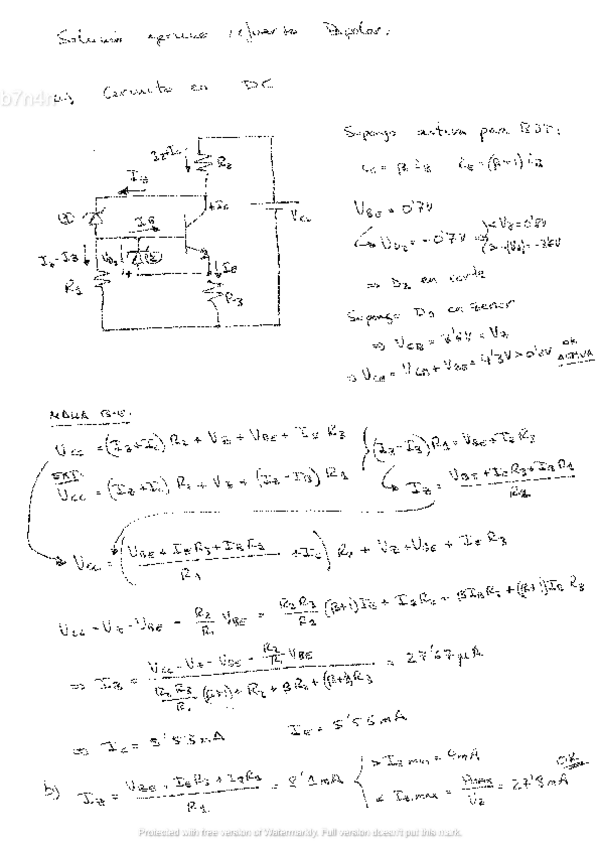 Solución ejercicio refuerzo Bipolar:
b7n4n
a) Circuito en DC
Supongo activa para BJT:
ic = β iB iE = (β+1) iB
VBE = 0'7V
UDZ = -0'7V ⇒ < VZ = 0'8V
⇒ D2 en corte
Supongo D1 en zener
⇒ VCB = 3'6V = VZ
⇒ VCE = VCB + VBE = 4'3V > 0'2V OK ACTIVA
IZ
IZ+IC
R2
IC
VCC
IB
IZ-IB
R1
IE
R3
MALLA B-E:
VCC = (IZ+IC) R2 + VZ + VBE + IE R3
EXT:
VCC = (IZ+IC) R2 + VZ + (IZ-IB) R1
(IZ-IB) R1 = VBE + IE R3
IZ = VBE + IE R3 + IB R1 / R1
VCC = (VBE + IE R3 + IB R1 / R1 + IC) R2 + VZ + VBE + IE R3
VCC - VZ - VBE - R2/R1 VBE = R2 R3/R1 (β+1) IB + IB R2 + β IB R2 + (β+1) IB R3
⇒ IB = VCC - VZ - VBE - R2/R1 VBE / R2 R3/R1 (β+1) + R2 + β R2 + (β+1) R3 = 27'67 μA
⇒ IC = 5'53 mA IE = 5'56 mA
b) IZ = VBE + IE R3 + IB R1 / R1 = 8'1 mA
> IZ min = 4mA
< IZ max = Pmax / VZ = 27'8 mA OK
Protected with free version of Watermarkly. Full version doesn't put this mark.